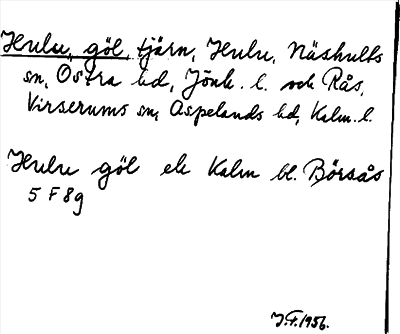 Hulu, göl, tjärn, Hulu, Näshults
sn, Östra hd, Jönk. l. och Rås,
Virserums sn, Aspelands hd, Kalm. l.
Hulu göl ek Kalm bl. Börsås
5 F 8g
J.F. 1956.